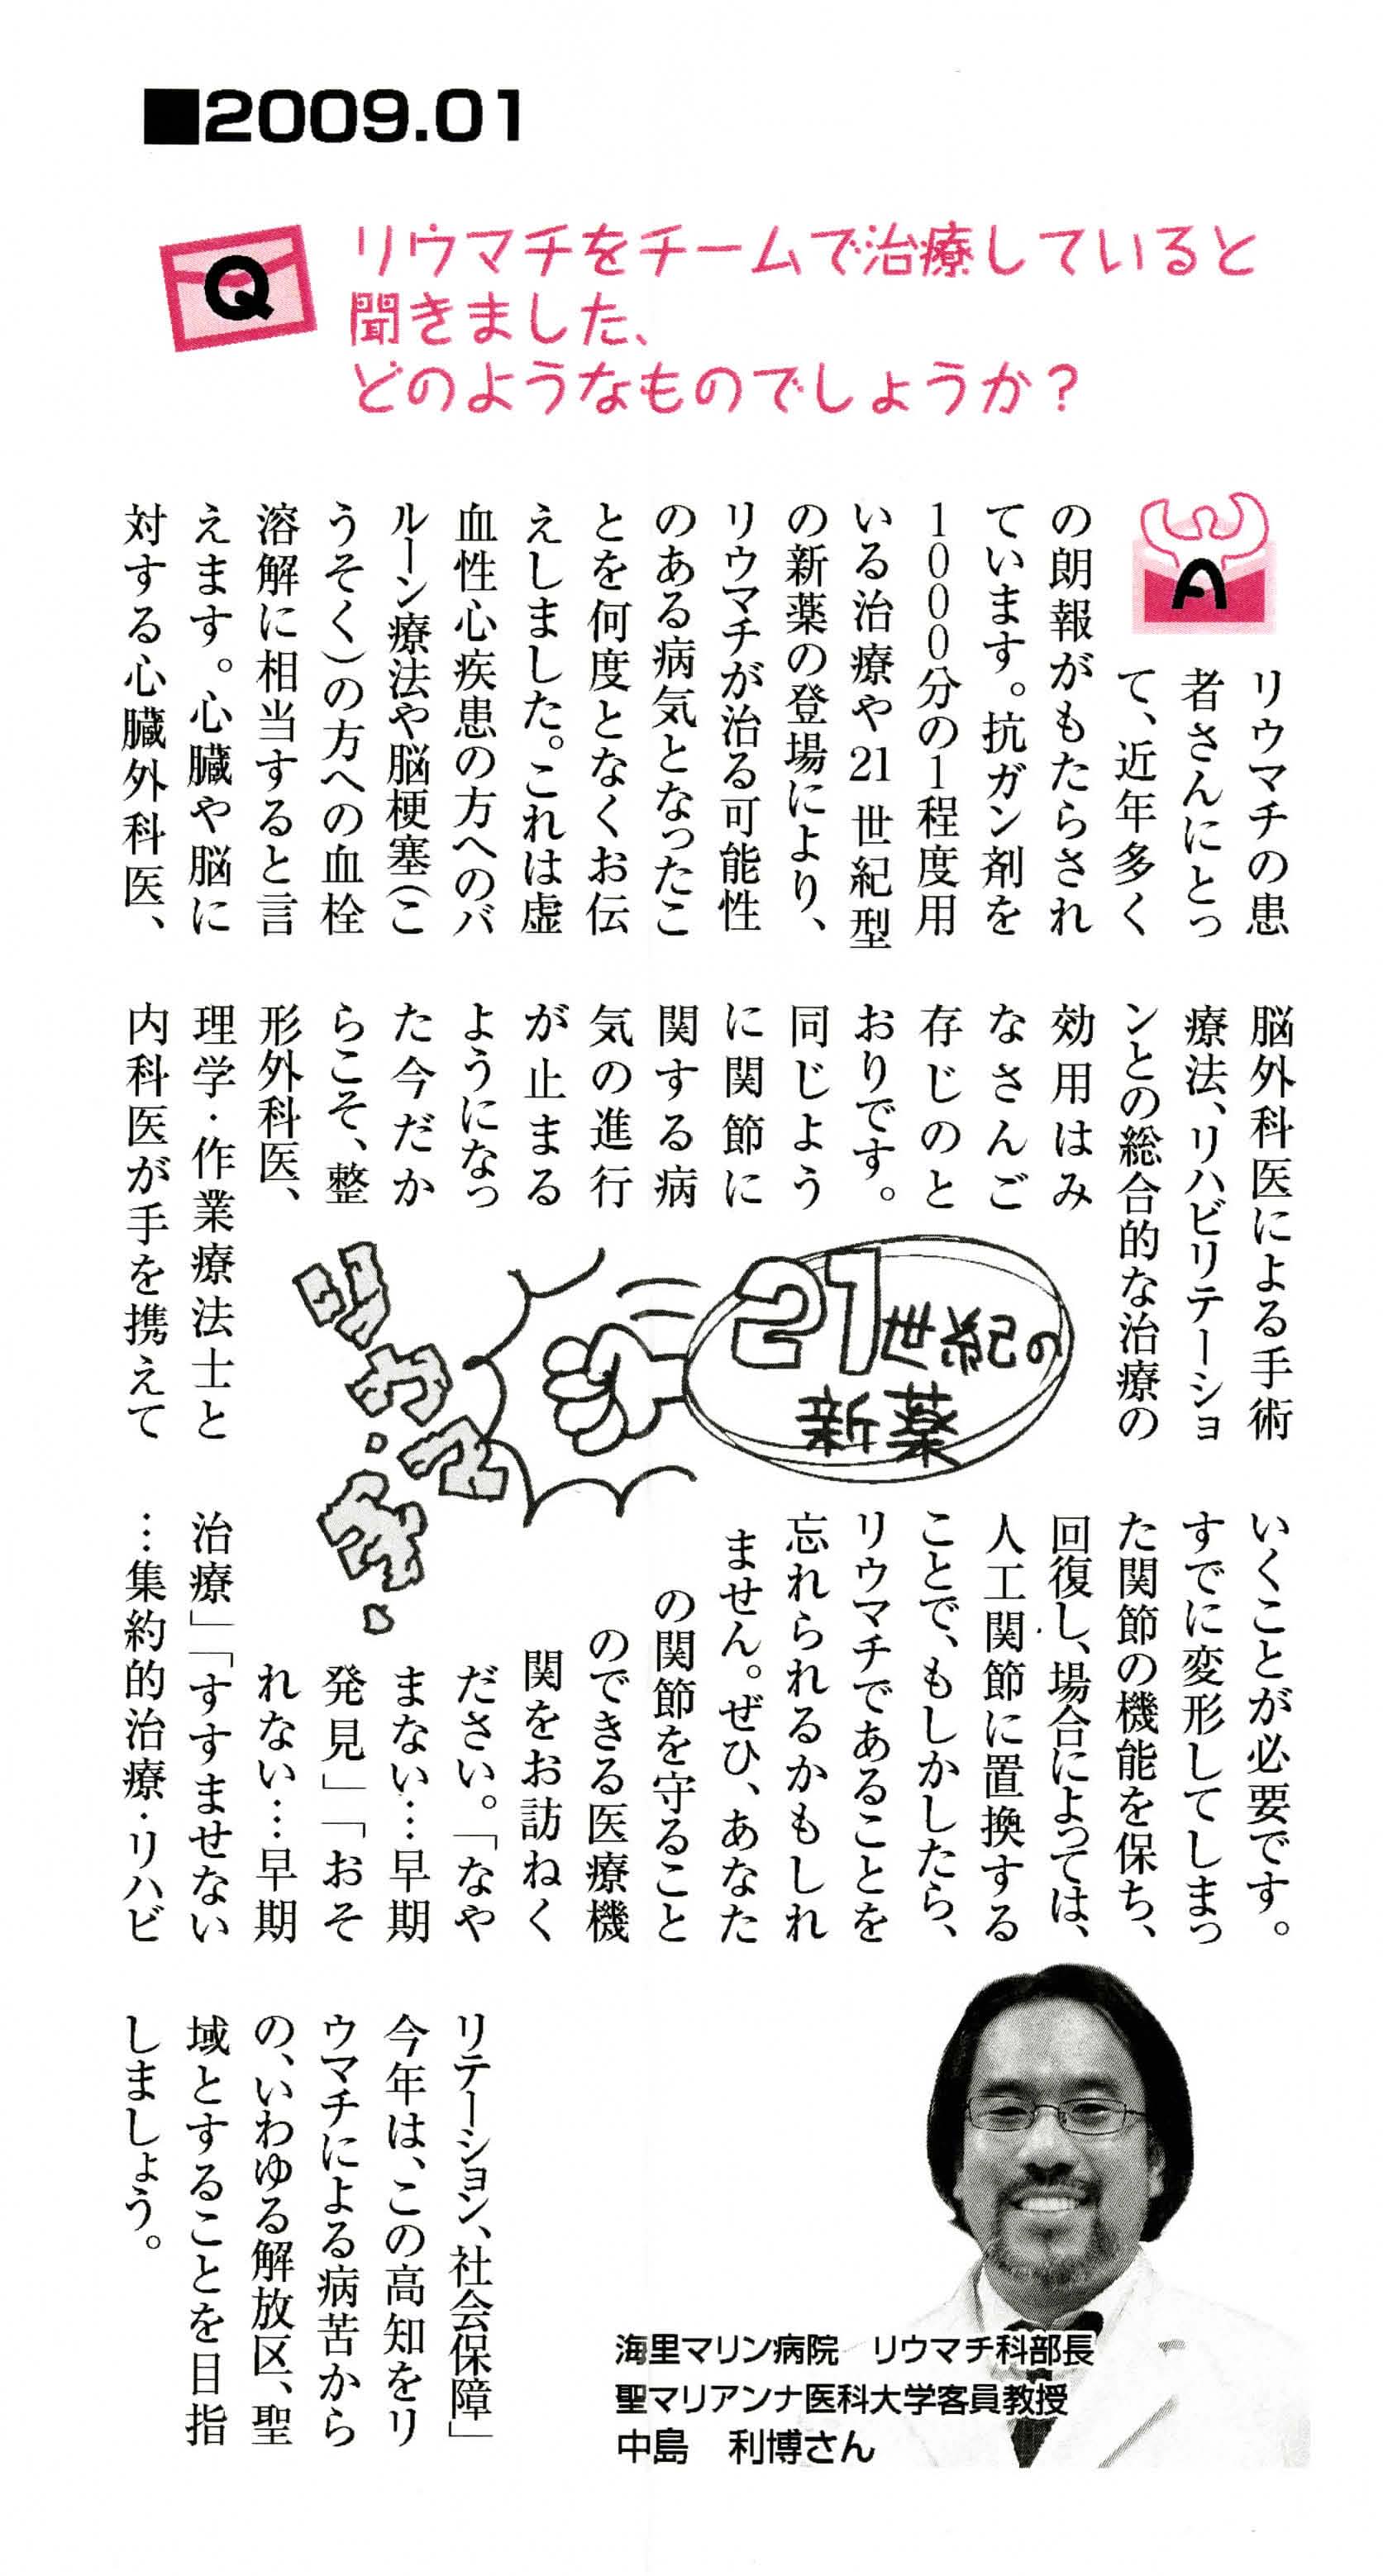 ■2009.01
Q
リウマチをチームで治療していると
聞きました、
どのようなものでしょうか?
A
リウマチの患
者さんにとっ
て、近年多く
の朗報がもたらされ
ています。抗ガン剤を
1000分の1程度用
いる治療や21世紀型
の新薬の登場により、
リウマチが治る可能性
のある病気となったこ
とを何度となくお伝
えしました。これは虚
血性心疾患の方へのバ
ルーン療法や脳梗塞(こ
うそく)の方への血栓
溶解に相当すると言
えます。心臓や脳に
対する心臓外科医、
脳外科医による手術
療法、リハビリテーショ
ンとの総合的な治療の
効用はみ
なさんご
存じのと
おりです。
同じよう
に関節に
関する病
気の進行
が止まる
ようになっ
た今だか
らこそ、整
形外科医、
理学・作業療法士と
内科医が手を携えて
21世紀の
新薬
リウマチ
いくことが必要です。
すでに変形してしまっ
た関節の機能を保ち、
回復し、場合によっては、
人工関節に置換する
ことで、もしかしたら、
リウマチであることを
忘れられるかもしれ
ません。ぜひ、あなた
の関節を守ること
のできる医療機
関をお訪ねく
ださい。「なや
まない…早期
発見」「おそ
れない…早期
治療」「すすませない
…集約的治療・リハビ
リテーション、社会保障」
今年は、この高知をリ
ウマチによる病苦から
の、いわゆる解放区、聖
域とすることを目指
しましょう。
海里マリン病院 リウマチ科部長
聖マリアンナ医科大学客員教授
中島 利博さん